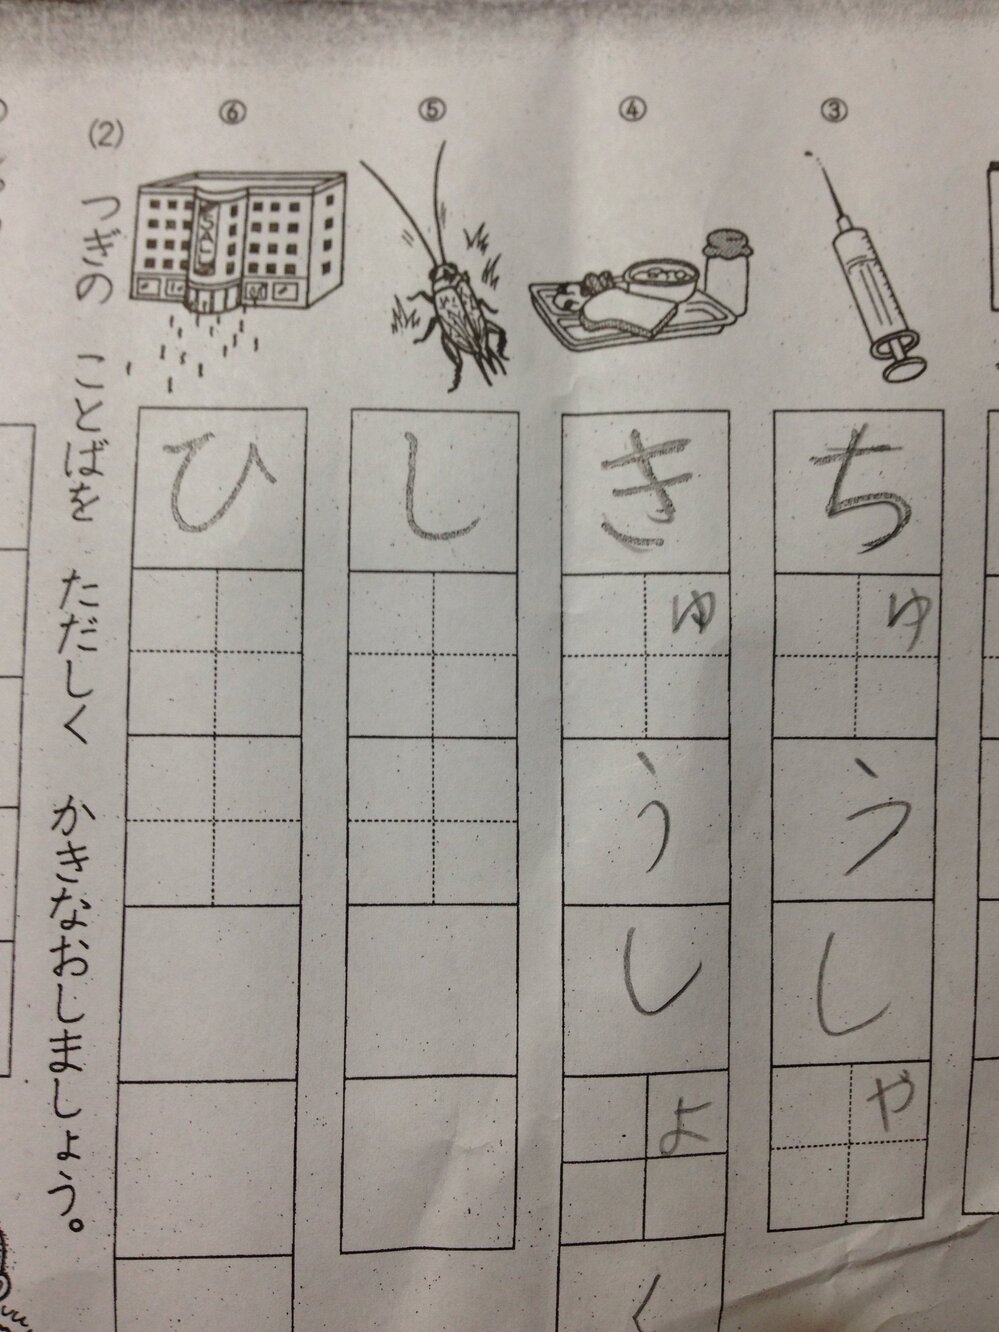 ③
ちゅうしや
④
きゅうしよく
⑤
し
⑥
ひ
(2) つぎの ことばを ただしく かきなおしましょう。